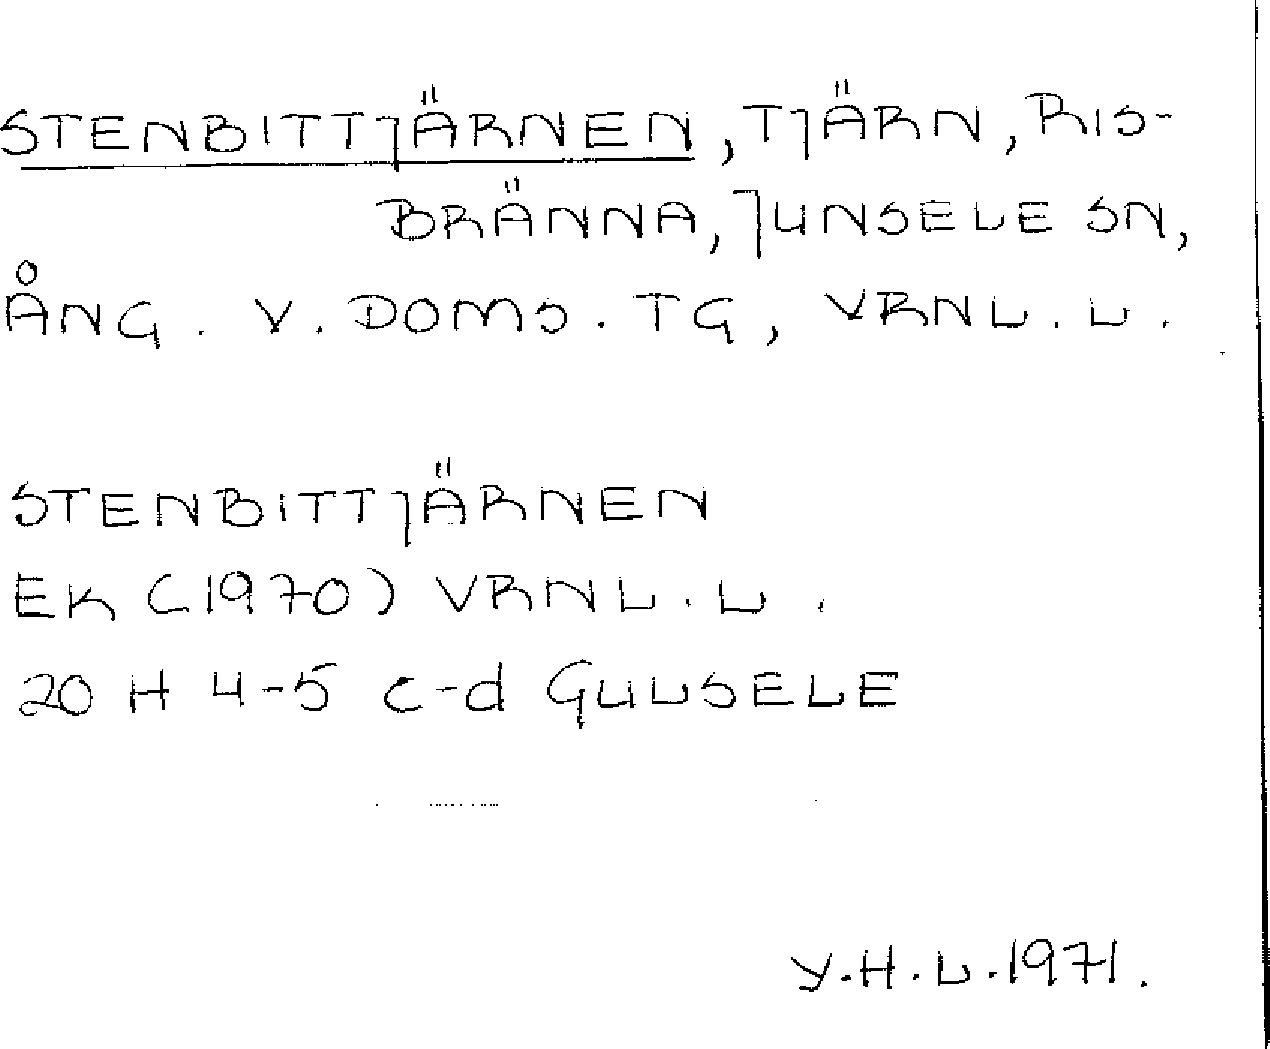 STENBITTJÄRNEN, TJÄRN, RIS-
BRÄNNA, JUNSELE SN,
ÅNG. V. DOMS. TG, VRNL. L.
STENBITTJÄRNEN
EK (1970) VRNL. L.
20 H 4-5 c-d GULSELE
Y.H.L. 1971.